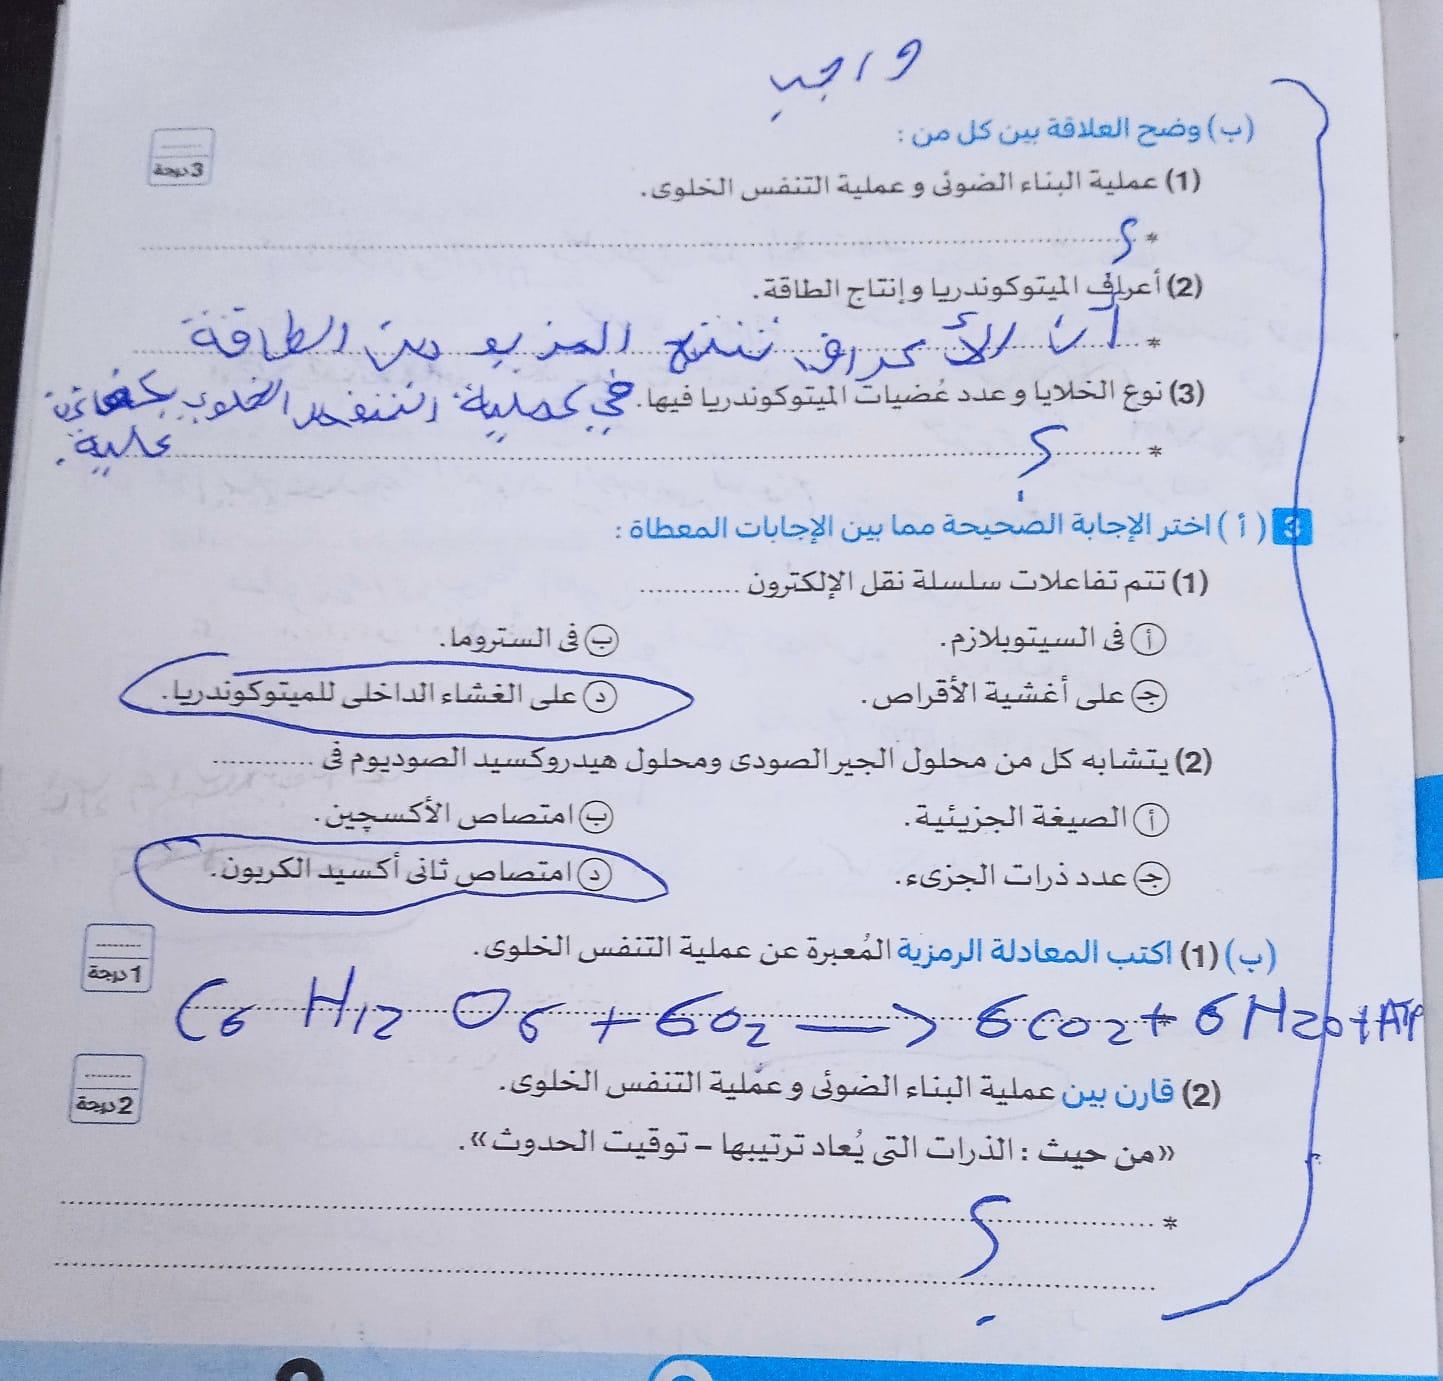 واجب
(ب) وضح العلاقة بين كل من :
3 درجة
(1) عملية البناء الضوئى و عملية التنفس الخلوى.
* ؟
(2) أعراف الميتوكوندريا و إنتاج الطاقة.
* أن الأعراف تنتج المزيد من الطاقة
في عملية التنفس الخلوى بكفائة
عالية.
(3) نوع الخلايا و عدد عُضيات الميتوكوندريا فيها.
* ؟
3 ( أ ) اختر الإجابة الصحيحة مما بين الإجابات المعطاة :
(1) تتم تفاعلات سلسلة نقل الإلكترون ............
أ فى السيتوبلازم. ب فى الستروما.
ج على أغشية الأقراص. د على الغشاء الداخلى للميتوكوندريا.
(2) يتشابه كل من محلول الجير الصودى ومحلول هيدروكسيد الصوديوم فى ............
أ الصيغة الجزيئية. ب امتصاص الأكسچين.
ج عدد ذرات الجزىء. د امتصاص ثانى أكسيد الكربون.
(ب) (1) اكتب المعادلة الرمزية المُعبرة عن عملية التنفس الخلوى.
1 درجة
* C6 H12 O6 + 6O2 → 6CO2 + 6H2O + ATP
(2) قارن بين عملية البناء الضوئى و عملية التنفس الخلوى.
2 درجة
«من حيث : الذرات التى يُعاد ترتيبها – توقيت الحدوث».
* ؟